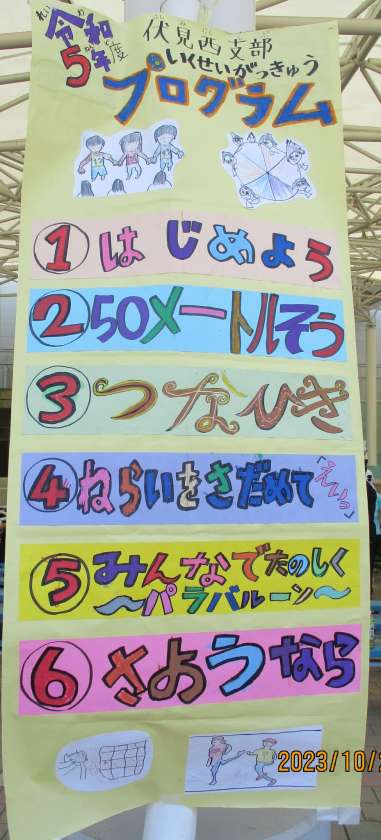 令和
5年度
伏見西支部
いくせいがっきゅう
プログラム
①はじめよう
②50メートルそう
③つなひき
④ねらいをさだめて「えいっ」
⑤みんなでたのしく
～パラバルーン～
⑥さようなら
2023/10/2